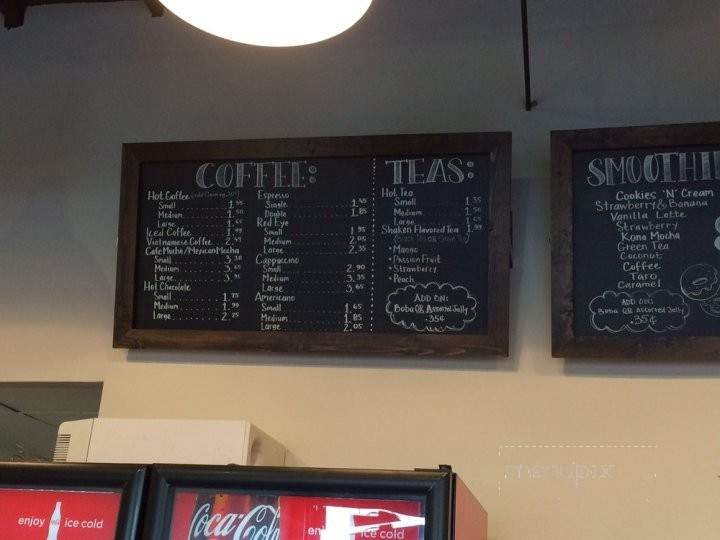 COFFEE:
Hot Coffee
Small 1.35
Medium 1.50
Large 1.65
Iced Coffee 1.99
Vietnamese Coffee 2.49
Cafe Mocha/Mexican Mocha
Small 3.30
Medium 3.65
Large 3.95
Hot Chocolate
Small 1.75
Medium 1.99
Large 2.25
Espresso
Single 1.45
Double 1.85
Red Eye
Small 1.95
Medium 2.05
Large 2.35
Cappuccino
Small 2.90
Medium 3.35
Large 3.65
Americano
Small 1.65
Medium 1.85
Large 2.05
TEAS:
Hot Tea
Small 1.35
Medium 1.50
Large
Shaken Flavored Tea 1.99
• Mango
• Passion Fruit
• Strawberry
• Peach
ADD ON:
Boba OR Assorted Jelly
.35¢
SMOOTHI
Cookies 'N' Cream
Strawberry & Banana
Vanilla Latte
Strawberry
Kona Mocha
Green Tea
Coconut
Coffee
Taro
Caramel
ADD ON:
Boba OR Assorted Jelly
.35¢
menupix
enjoy ice cold
Coca-Col
en ice cold